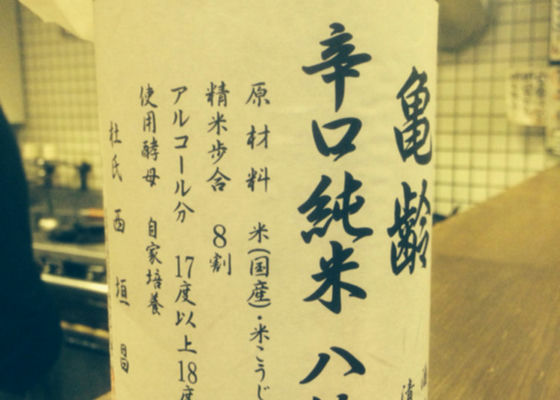 亀齢
辛口純米 八
原材料 米(国産)・米こうじ
精米歩合 8割
アルコール分 17度以上18度
使用酵母 自家培養
杜氏 西垣昌